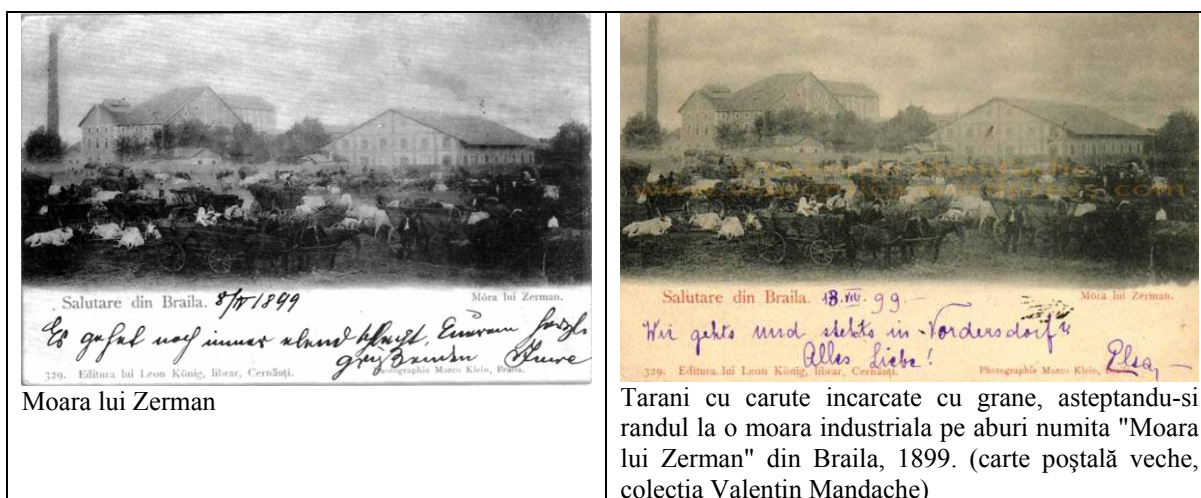 Salutare din Braila. 8/IV 1899
Móra lui Zerman.
Es gehet noch immer elend schlecht, Euerem herzl.
grüßenden
329. Editura lui Leon König, librar, Cernăuţi.
Photographie Marco Klein, Braila.
Moara lui Zerman
Salutare din Braila. 13.VIII.99.–
Móra lui Zerman.
Wie gehts und stehts in Vordersdorf?
Alles Liebe!
Elsa,–
329. Editura lui Leon König, librar, Cernăuţi.
Photographie Marco Klein,
Tarani cu carute incarcate cu grane, asteptandu-si
randul la o moara industriala pe aburi numita "Moara
lui Zerman" din Braila, 1899. (carte poştală veche,
colectia Valentin Mandache)